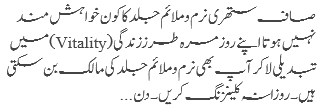 صاف ستھری نرم و ملائم جلد کا کون خواہش مند
نہیں ہوتا اپنے روز مرہ طرز زندگی (Vitality) میں
تبدیلی لا کر آپ بھی نرم و ملائم جلد کی مالک بن سکتی
ہیں۔ روزانہ کلینزنگ کریں۔ دن...